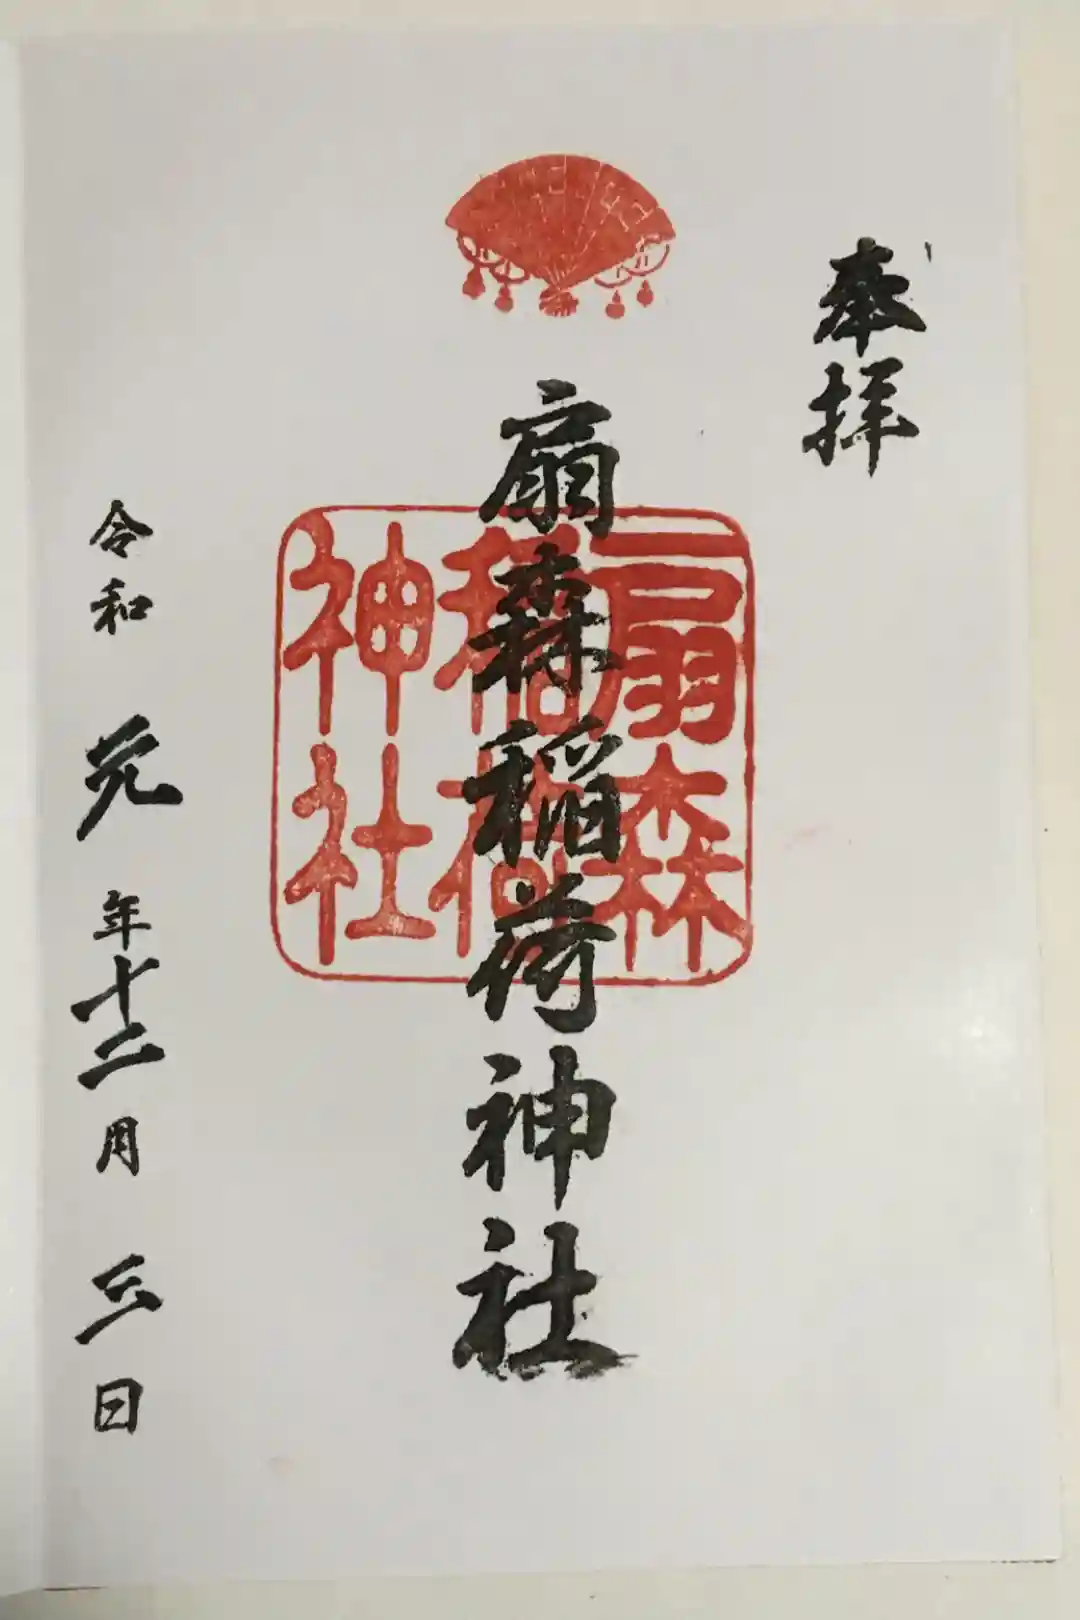 奉拝
扇森稲荷神社
扇森
稲荷
神社
令和元年十二月三日